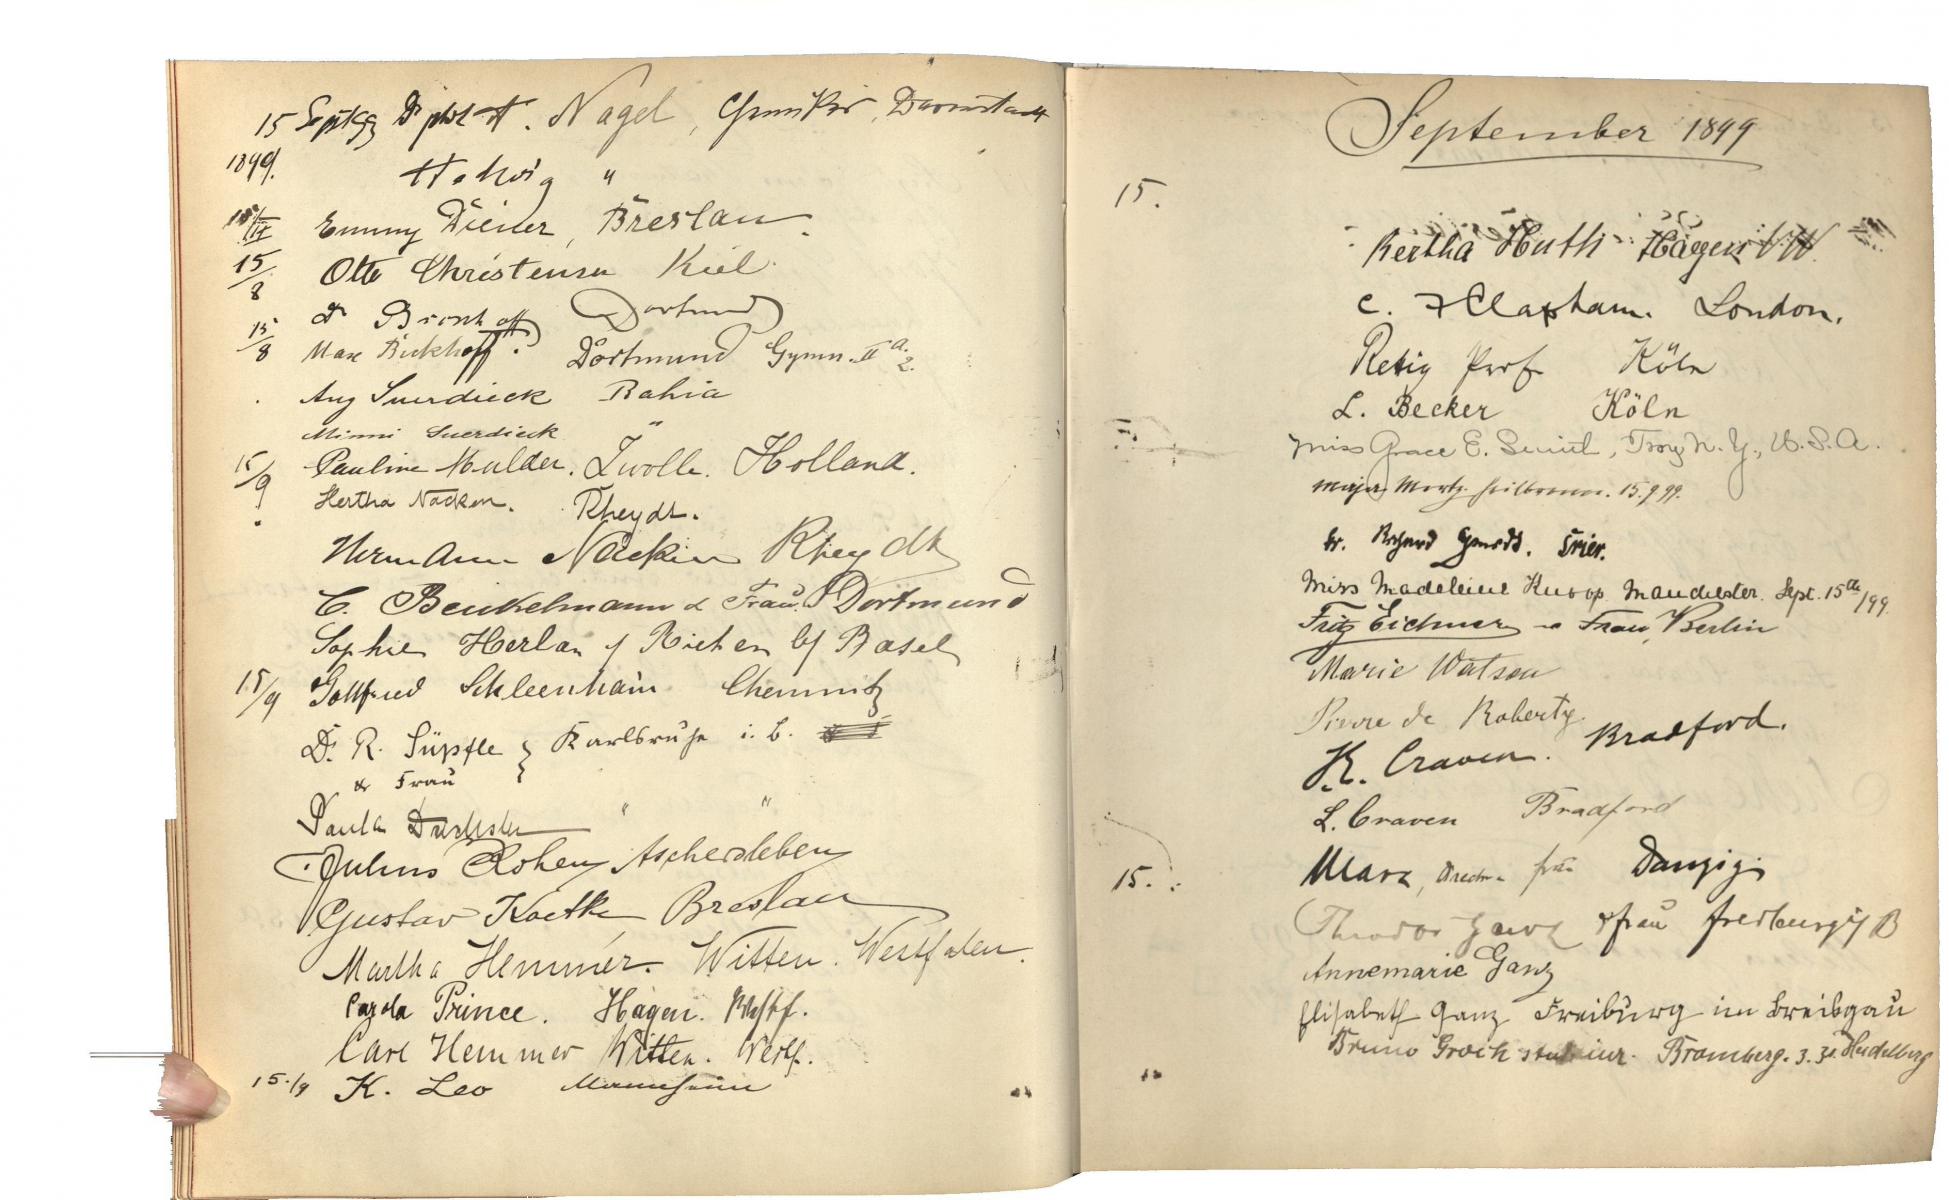 15 Sept 99 Dr phil A. Nagel, Chemiker, Darmstadt
1899. Hedwig "
15/IX Emmy Diener, Breslau.
15/8 Otto Christensen Kiel.
Dr Dortmund
15/8 Max Bickhoff. Dortmund Gymn. II a. 2.
Aug Suerdieck Bahia
Minni Suerdieck "
15/9 Pauline Mulder. Zwolle. Holland.
Hertha Nacken. Rheydt.
Hermann Nacken Rheydt
C. Beukelmann & Frau. Dortmund
Sophie Herlan Riehen b/ Basel
15/9 Gottfried Schleenhain Chemnitz
Dr. R. Süpfle } Karlsruhe i. B.
& Frau
Paula " "
Julius Cohen Aschersleben
Gustav Koethke Breslau
Martha Hemmer. Witten. Westfalen.
Prince. Hagen. Westf.
Carl Hemmer Witten. Westf.
15./9 K. Leo Mannheim
September 1899
15.
Bertha Huth Hagen i/W.
C. F Clapham. London.
Retig Prof. Köln
L. Becker Köln
Miss Grace E. Troy N.Y., U.S.A.
Major Heilbronn. 15.9.99.
Dr. Trier.
Miss Madeleine Knoop. Manchester. Sept. 15th/99.
Fritz Eichner u Frau, Berlin
Marie Watson
Pierre de Roberty.
K. Craven. Bradford.
L. Craven Bradford
15. Marx, Danzig.
Theodor Ganz & frau freiburg i/B
Annemarie Ganz
Elisabeth Ganz Freiburg im Breisgau
Bruno stud. iur. Bromberg. z. Zt. Heidelberg